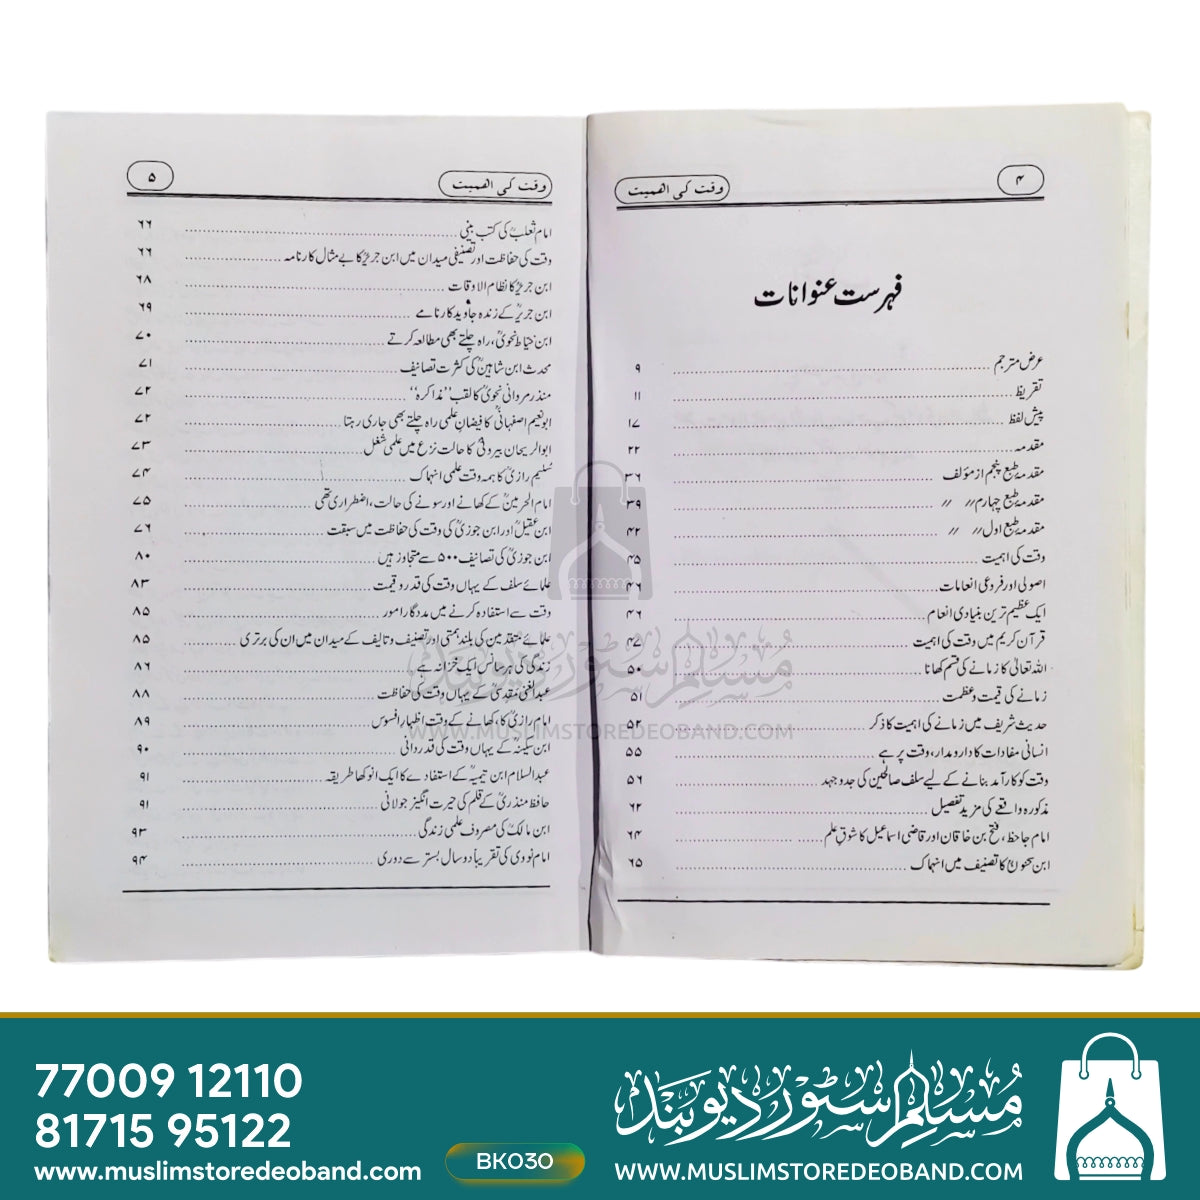 ۴
وقت کی اهمیت
فہرست عنوانات
عرض مترجم ۹
تقریظ ۱۱
پیش لفظ ۱۷
مقدمہ ۲۲
مقدمہ طبع پنجم از مؤلف ۳۶
مقدمہ طبع چہارم // // ۳۹
مقدمہ طبع اول // // ۴۲
وقت کی اہمیت ۴۵
اصولی اور فروعی انعامات ۴۶
ایک عظیم ترین بنیادی انعام ۴۶
قرآن کریم میں وقت کی اہمیت ۴۷
اللہ تعالیٰ کا زمانے کی قسم کھانا ۵۰
زمانے کی قیمت و عظمت ۵۱
حدیث شریف میں زمانے کی اہمیت کا ذکر ۵۲
انسانی مفادات کا دار و مدار، وقت پر ہے ۵۵
وقت کو کارآمد بنانے کے لیے سلف صالحین کی جدوجہد ۵۶
مذکورہ واقعے کی مزید تفصیل ۶۲
امام جاحظ، فتح بن خاقان اور قاضی اسماعیل کا شوقِ علم ۶۴
ابن سحنونؒ کا تصنیف میں انہماک ۶۵
وقت کی اهمیت
۵
امام ثعلبؒ کی کتب بینی ۶۶
وقت کی حفاظت اور تصنیفی میدان میں ابن جریرؒ کا بے مثال کارنامہ ۶۶
ابن جریرؒ کا نظام الاوقات ۶۸
ابن جریرؒ کے زندہ جاوید کارنامے ۶۹
ابن خیاط نحویؒ، راہ چلتے بھی مطالعہ کرتے ۷۰
محدث ابن شاہینؒ کی کثرت تصانیف ۷۱
منذر مروانی نحویؒ کا لقب ’’مذاکرہ‘‘ ۷۲
ابونعیم اصفہانیؒ کا فیضانِ علمی راہ چلتے بھی جاری رہتا ۷۲
ابوالریحان بیرونیؒ کا حالت نزع میں علمی شغل ۷۳
سُلیم رازیؒ کا ہمہ وقت علمی انہماک ۷۴
امام الحرمینؒ کے کھانے اور سونے کی حالت، اضطراری تھی ۷۵
ابن عقیلؒ اور ابن جوزیؒ کی وقت کی حفاظت میں سبقت ۷۶
ابن جوزیؒ کی تصانیف ۵۰۰ سے متجاوز ہیں ۸۰
علمائے سلف کے یہاں وقت کی قدر و قیمت ۸۳
وقت سے استفادہ کرنے میں مددگار امور ۸۵
علمائے متقدمین کی بلند ہمتی اور تصنیف و تالیف کے میدان میں ان کی برتری ۸۵
زندگی کی ہر سانس ایک خزانہ ہے ۸۶
عبدالغنی مقدسیؒ کے یہاں وقت کی حفاظت ۸۸
امام رازیؒ کا، کھانے کے وقت اظہار افسوس ۸۹
ابن سکینہؒ کے یہاں وقت کی قدردانی ۹۰
عبدالسلام ابن تیمیہؒ کے استفادے کا ایک انوکھا طریقہ ۹۱
حافظ منذریؒ کے قلم کی حیرت انگیز جولانی ۹۱
ابن مالکؒ کی مصروف علمی زندگی ۹۳
امام نووی کی تقریباً دو سال بستر سے دوری ۹۴
مسلم سٹور دیوبند
WWW.MUSLIMSTOREDEOBAND.COM
77009 12110
81715 95122
www.muslimstoredeoband.com
BK030
مسلم سٹور دیوبند
WWW.MUSLIMSTOREDEOBAND.COM